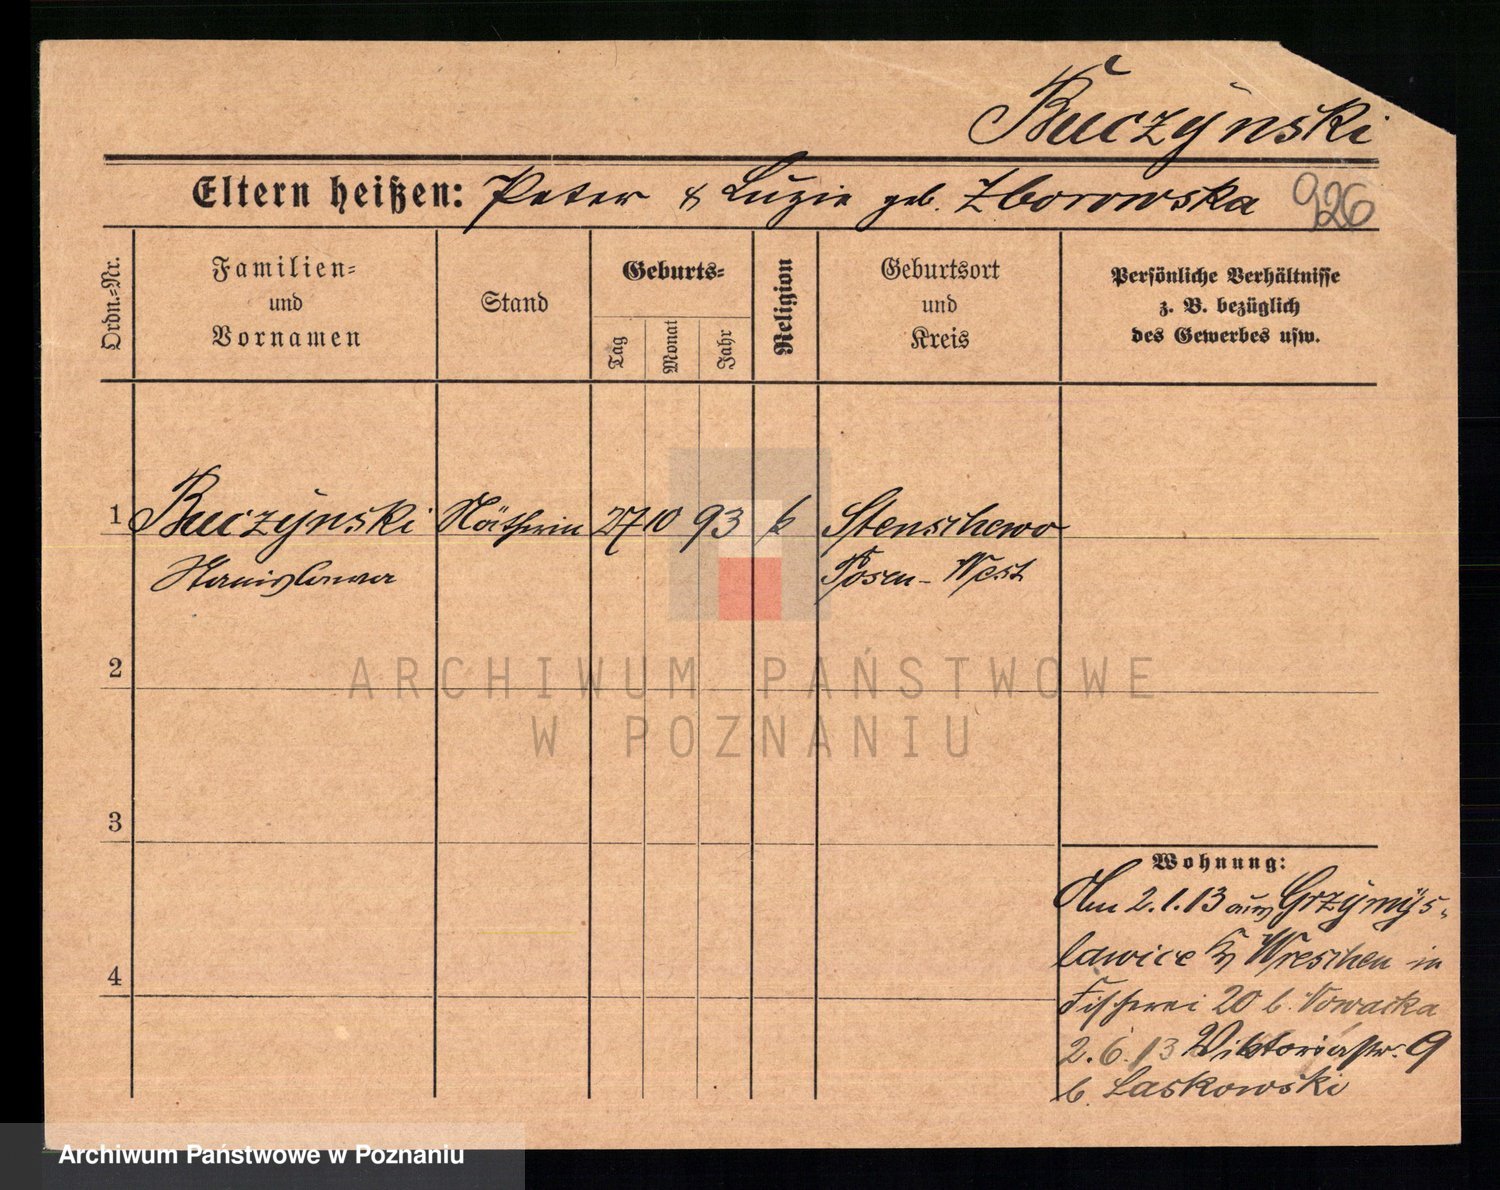 Buczÿnski
Eltern heißen: Peter & Luzie geb. Zborowska 926
Ordn.=Nr.
Familien=
und
Vornamen
Stand
Geburts=
Tag
Monat
Jahr
Religion
Geburtsort
und
Kreis
Persönliche Verhältnisse
z. B. bezüglich
des Gewerbes usw.
1 Buczÿnski Nätherin 27 10 93 k Stenschewo
Stanislawa Posen-West
2
3
4
Wohnung:
Am 2.1.13 aus Grzÿmÿs-
lawice Kr Wreschen in
Fischerei 20 b. Nowacka
2.6.13 Viktoriastr. 9
b. Laskowski
ARCHIWUM PAŃSTWOWE
W POZNANIU
Archiwum Państwowe w Poznaniu